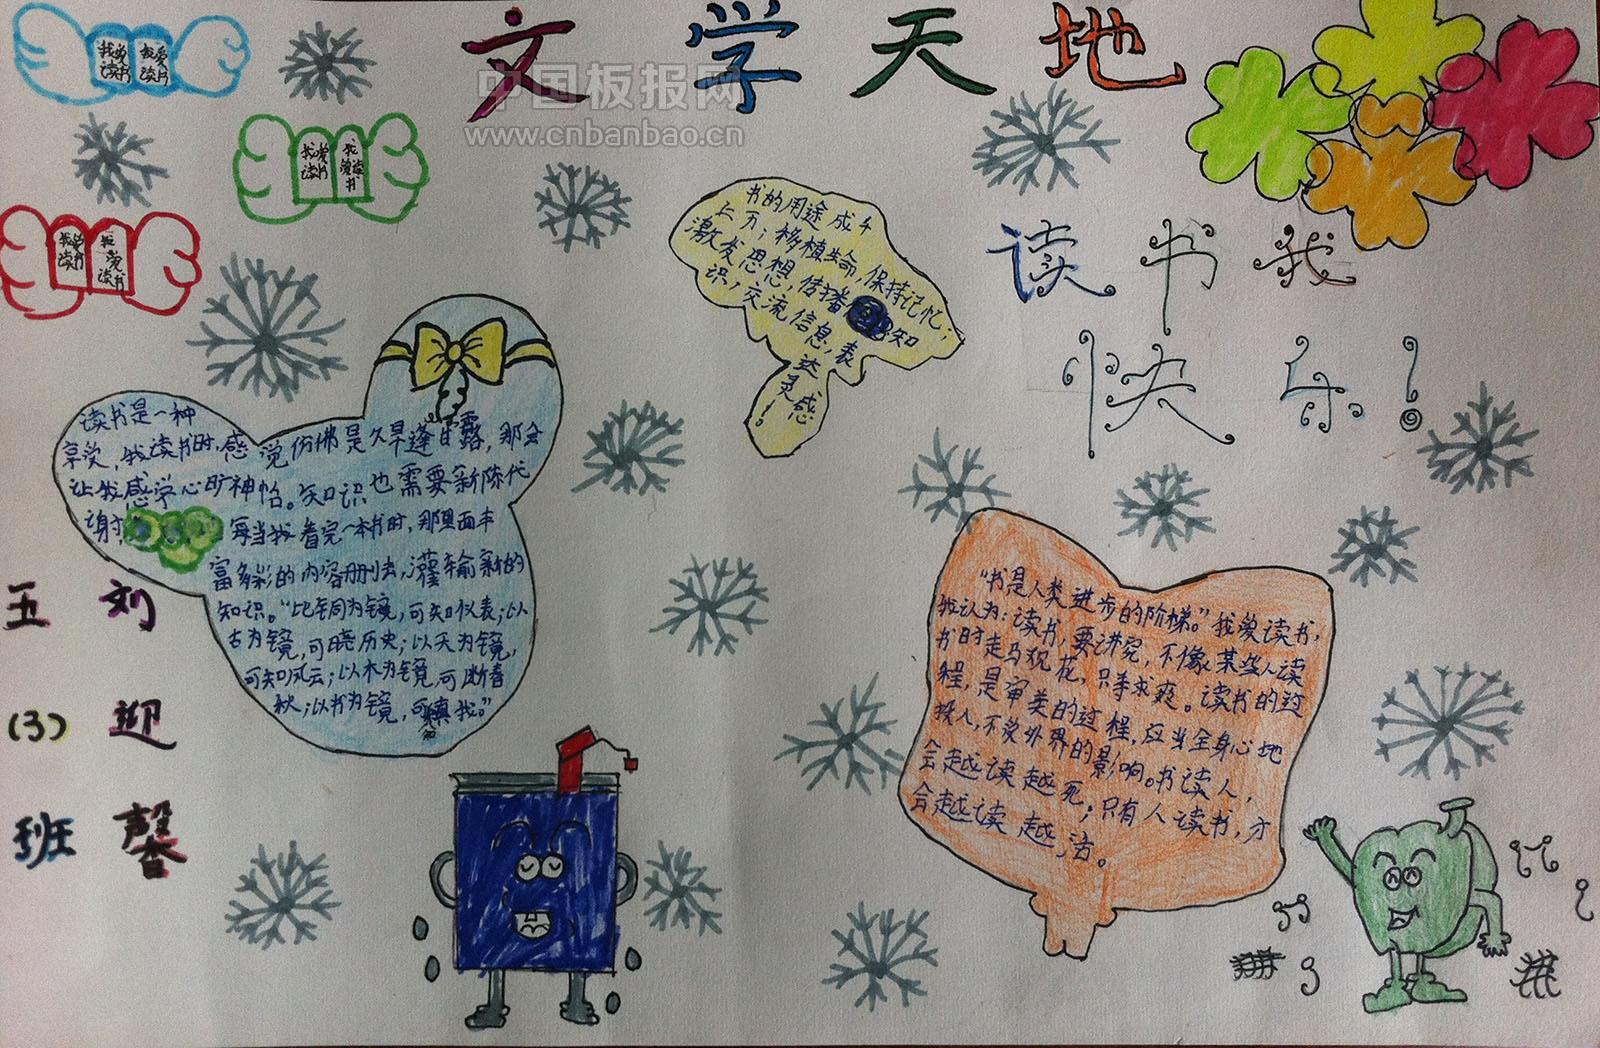 文学天地
中国板报网
www.cnbanbao.cn
我爱
读书
我爱
读书
我爱
读书
我
爱读
书
我爱
读书
我
爱
读书
书的用途成千
上万；移植生命，保持记忆；
激发思想，传播知
识，交流信息，表
达
灵感
！
读书我
快乐！
读书是一种
享受，我读书时，感觉仿佛是久旱逢甘露，那会
让我感学心旷神怡。知识也需要新陈代
谢，每当我看完一本书时，那里面丰
富多彩的内容删去，灌输新的
知识。“比铜为镜，可知仪表；以
古为镜，可晓历史；以天为镜，
可知风云；以木为镜，可断春
秋；以书为镜，可填我。”
“书是人类进步的阶梯。”我爱读书，
我认为：读书，要讲究，不像某些人读
书时走马观花，只季求爽。读书的过
程，是审美的过程，应当全身心地
投入，不受外界的影响。书读人，
会越读越死；只有人读书，才
会越读越活。
五
(3)
班
刘
迎
馨